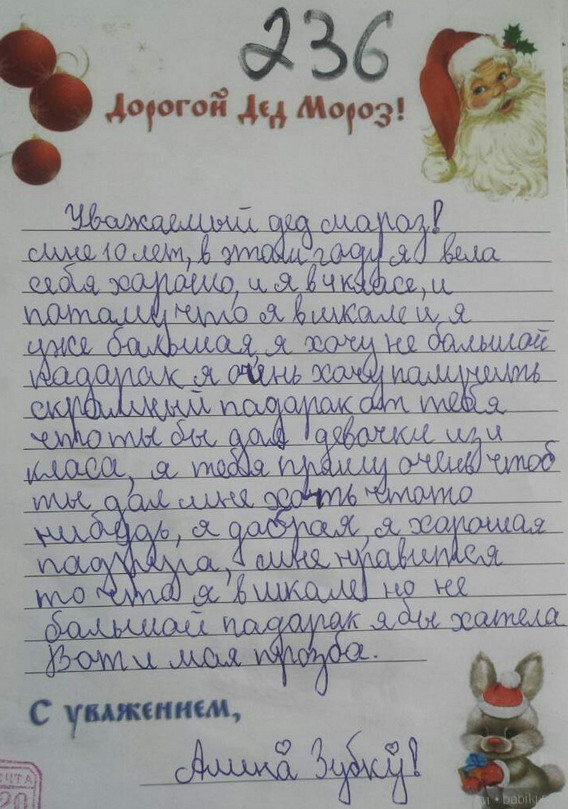 236
Дорогой Дед Мороз!
Уважаемый дед мараз!
мне 10 лет, в этом гаду я вела
себя харашо, и я в 4 класе, и
патаму что я в шкале и я
уже балшая, я хочу не балшой
падарак я очень хочу палучить
скрамный падарак от тебя
что ты бы дал девачки изи
класа, я тебя прашу очень чтоб
ты дал мне хоть что то
нибудь, я добрая, я харошая
падруга, мне нравится
то что я в шкале но не
балшой падарак я бы хатела
Вот и мая прозба.
С уважением,
Алина Зубку!
ЧТА
20
babiki